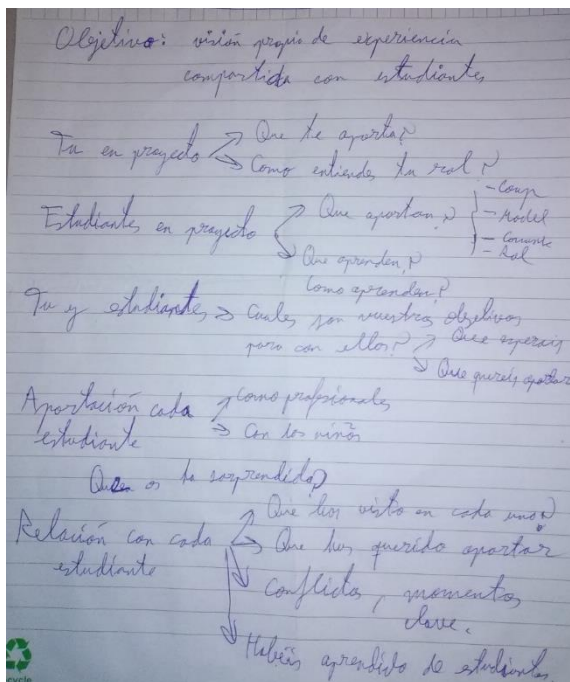 Objetivo: visión propia de experiencia
compartida con estudiantes
Tu en proyecto
Que te aporta?
Como entiendes tu rol?
- Comp
- Model
- Rol
Estudiantes en proyecto
Que aportan?
Que aprenden?
Como aprenden?
Tu y estudiantes
Cuales son vuestros objetivos
para con ellos?
Que esperais
Que quereis aportar
Aportación cada
estudiante
Como profesionales
Con los niños
Que os ha sorprendido?
Relación con cada
estudiante
Que has visto en cada uno?
Que has querido aportar
Conflictos, momentos
clave.
Habéis aprendido de estudiantes.